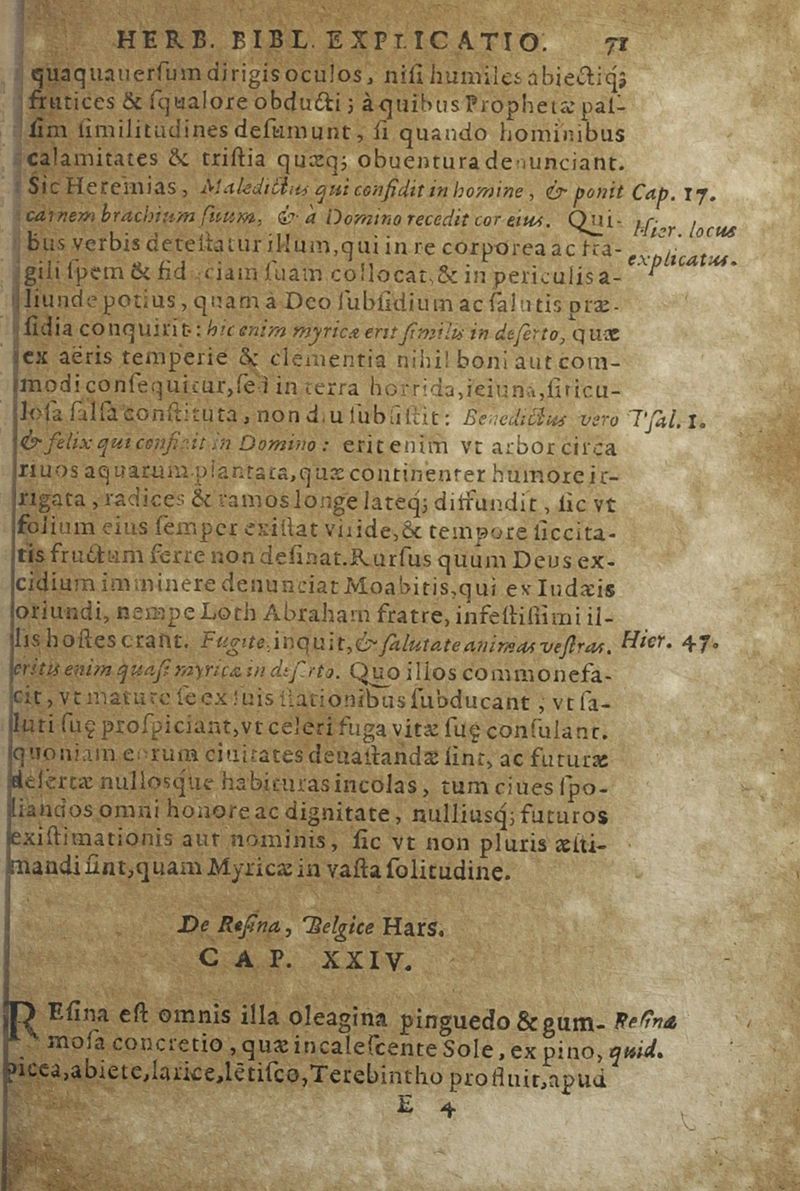 HERB. BIBL. EXPLICATIO. 71
quaquauersum dirigis oculos, nisi humiles abiectiq;
frutices & squalore obducti; à quibus Prophetæ pas-
sim similitudines desumunt, si quando hominibus
calamitates & tristia quæq; obuentura denunciant.
Sic Heremias, Maledictus qui confidit in homine, & ponit Cap. 17.
carnem brachium suum, & à Domino recedit cor eius. Qui- Hier. locus
bus verbis detestatur illum, qui in re corporea ac fra- explicatus.
gili spem & fiduciam suam collocat, & in periculis a-
liunde potius, quam à Deo subsidium ac salutis præ-
sidia conquirit: hic enim myricæ erit similis in deserto, quæ
ex aëris temperie & clementia nihil boni aut com-
modi consequitur, sed in terra horrida, ieiuna, siticu-
losa salsa constituta, non diu subsistit: Benedictus vero Psal. 1.
& felix qui confidit in Domino: erit enim vt arbor circa
riuos aquarum plantata, quæ continenter humore ir-
rigata, radices & ramos longe lateq; diffundit, sic vt
folium eius semper existat viride, & tempore siccita-
tis fructum ferre non desinat. Rursus quùm Deus ex-
cidium imminere denunciat Moabitis, qui ex Iudæis
oriundi, nempe Loth Abraham fratre, infestissimi il-
lis hostes erant. Fugite, inquit, & salutate animas vestras, Hier. 47.
eritis enim quasi myricæ in deserto. Quo illos commonefa-
cit, vt mature se ex suis stationibus subducant, vt sa-
luti suę prospiciant, vt celeri fuga vitæ suę consulant.
quoniam eorum ciuitates deuastandæ sint, ac futuræ
desertæ nullosque habituras incolas, tum ciues spo-
liandos omni honore ac dignitate, nulliusq; futuros
existimationis aut nominis, sic vt non pluris æsti-
mandi sint, quam Myricæ in vasta solitudine.
De Resina, Belgice Hars.
CAP. XXIV.
REsina est omnis illa oleagina pinguedo & gum- Resina
mosa concretio, quæ incalescente Sole, ex pino, quid.
picea, abiete, larice, lētisco, Terebintho profluit, apud
E 4